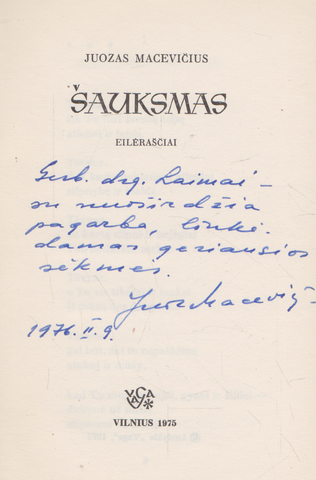 JUOZAS MACEVIČIUS
ŠAUKSMAS
EILĖRAŠČIAI
Gerb. drg. Laimai –
su nuoširdžia
pagarba, linkė-
damas geriausios
sėkmės.
Juoz Macevič–
1976.II.9.
VAGA
VILNIUS 1975